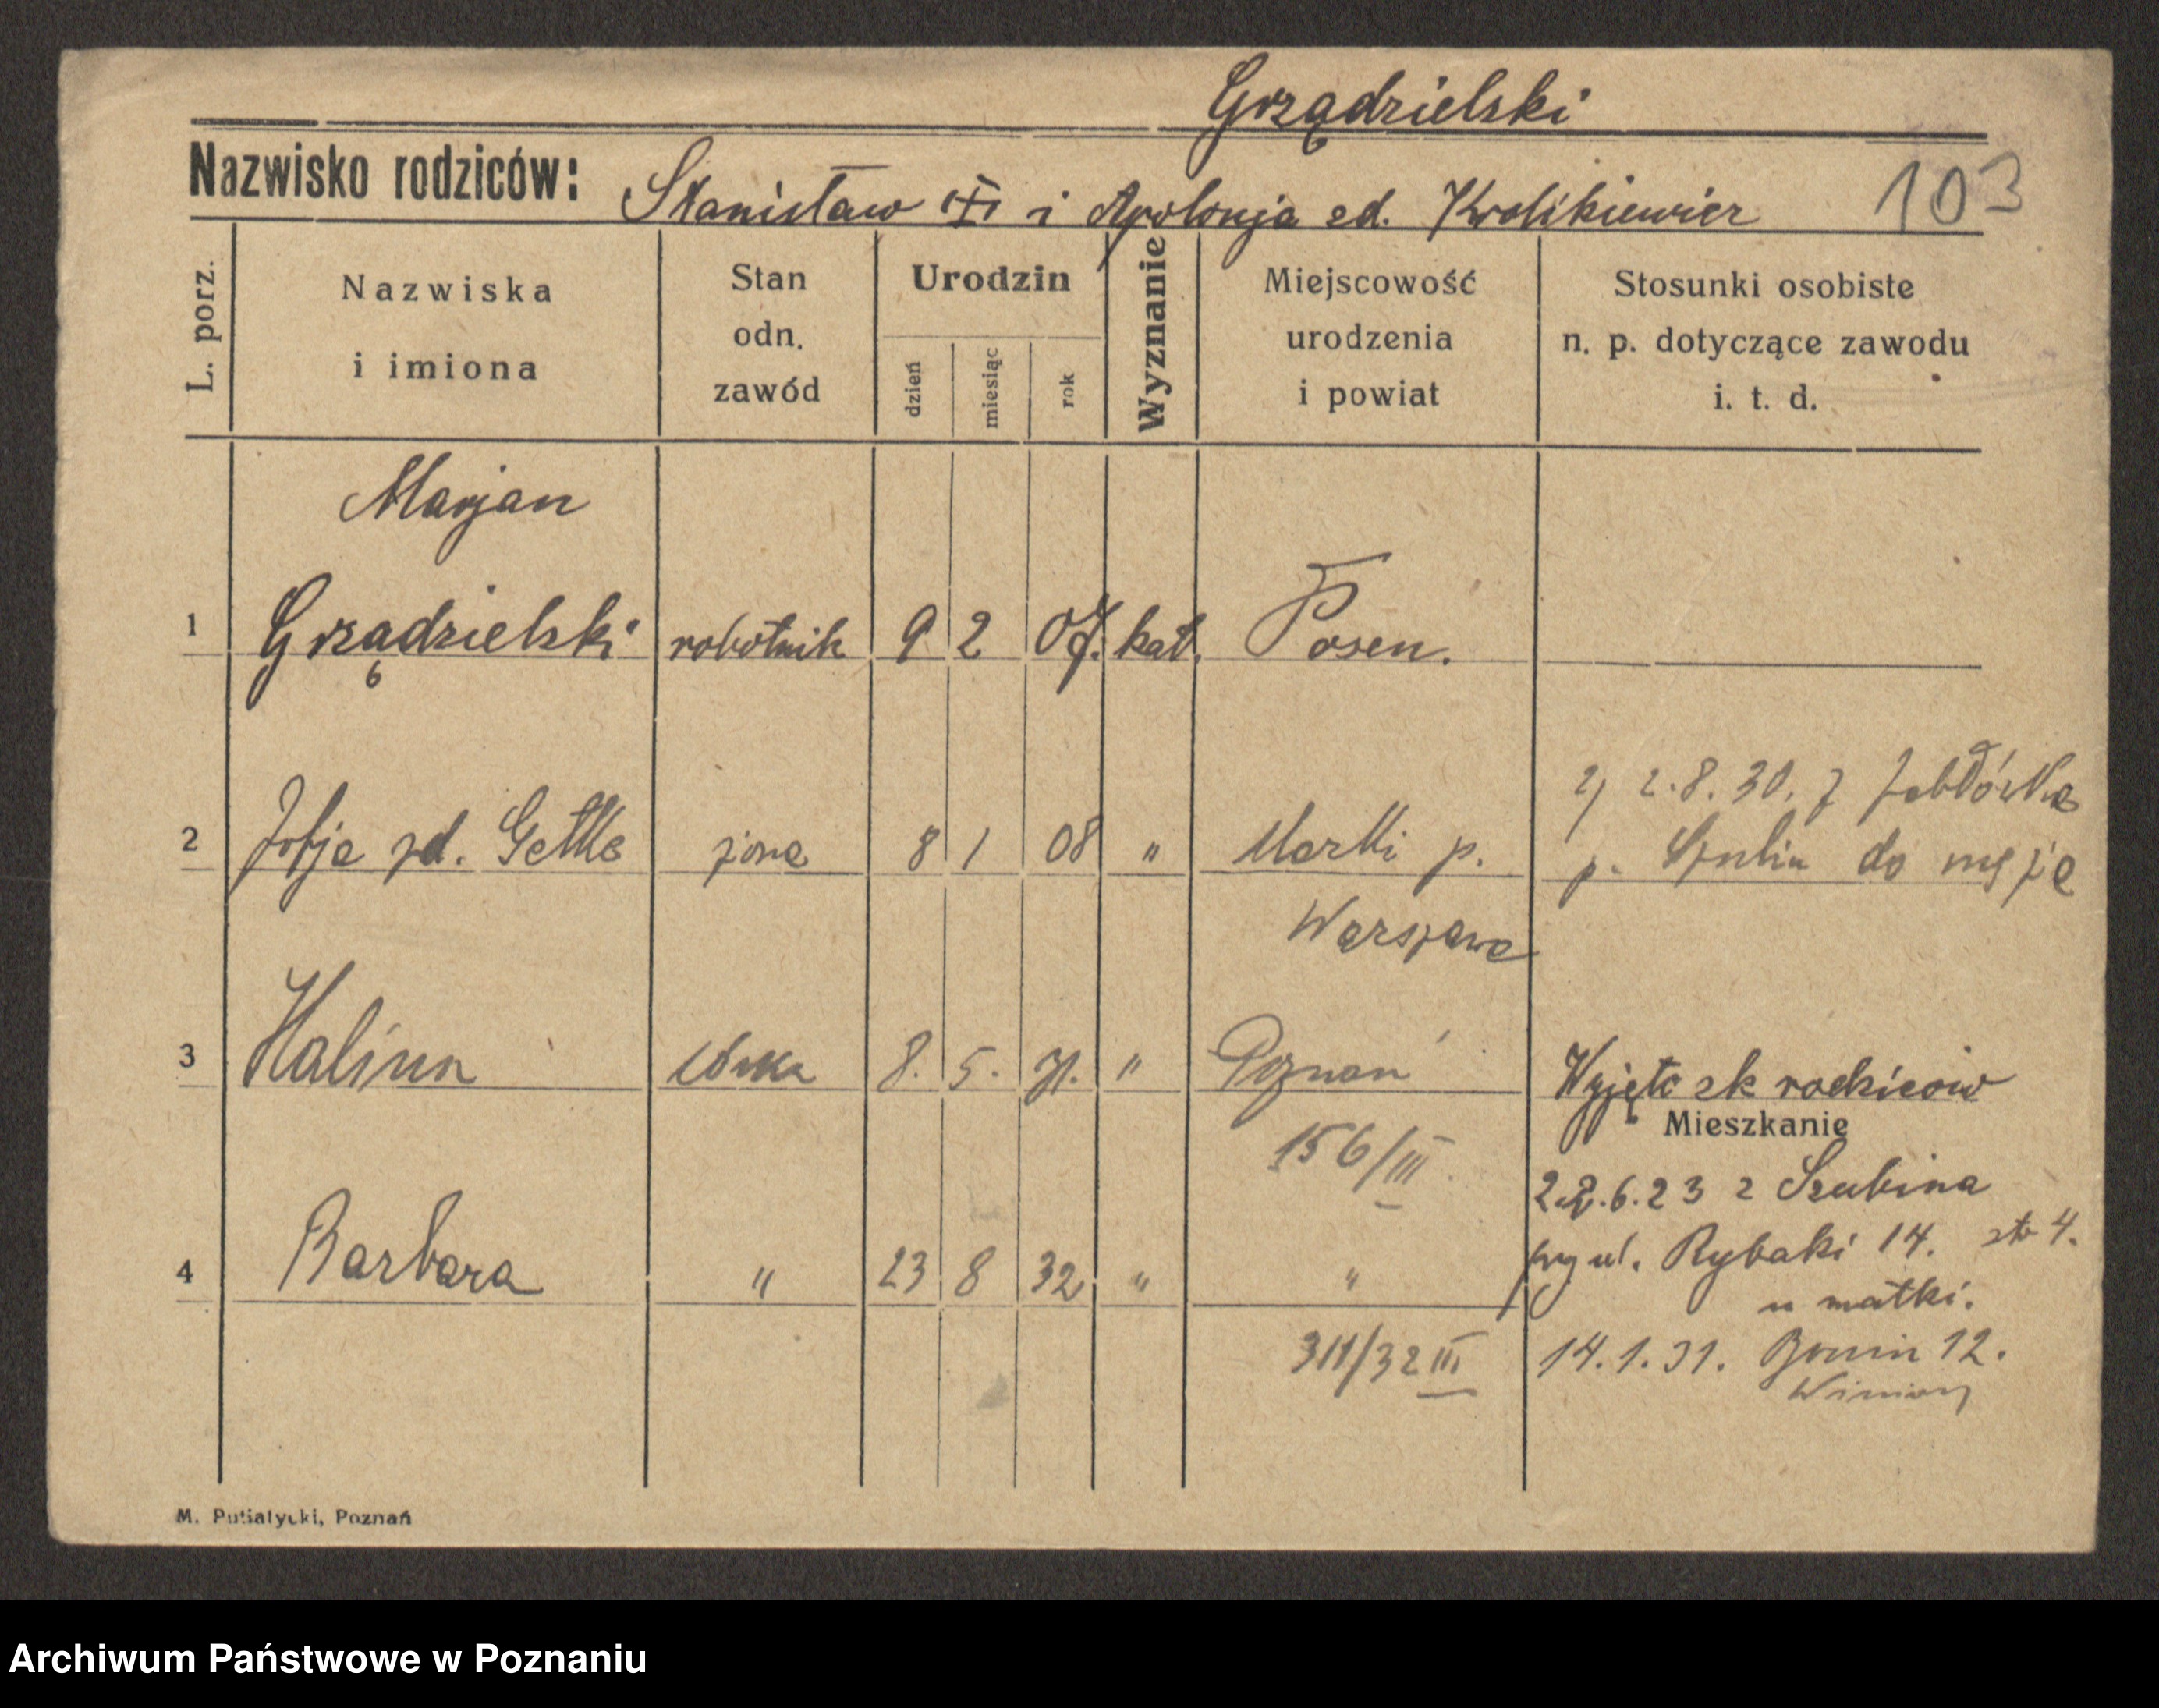 Grządzielski
Nazwisko rodziców: Stanisław (+) i Apolonja zd. Krolikiewicz 103
L. porz.
Nazwiska
i imiona
Stan
odn.
zawód
Urodzin
dzień
miesiąc
rok
Wyznanie
Miejscowość
urodzenia
i powiat
Stosunki osobiste
n. p. dotyczące zawodu
i. t. d.
Marjan
1 Grządzielski robotnik 9 2 07. kat. Posen.
2) 2.8.30. z
2 Zofja zd. żona 8 1 08 " Marki p.
p. Szubin do męża
Warszawa
3 Halina córka 8. 5. 31. " Poznań
Wyjęto zk rodziców
Mieszkanie
156/III
22.6.23 z Szubina
4 Barbara " 23 8 32 " "
przy ul. Rybaki 14. sto 4.
u matki.
311/32 III
14.1.31. Bonin 12.
Winiary
M. Putiatycki, Poznań
Archiwum Państwowe w Poznaniu